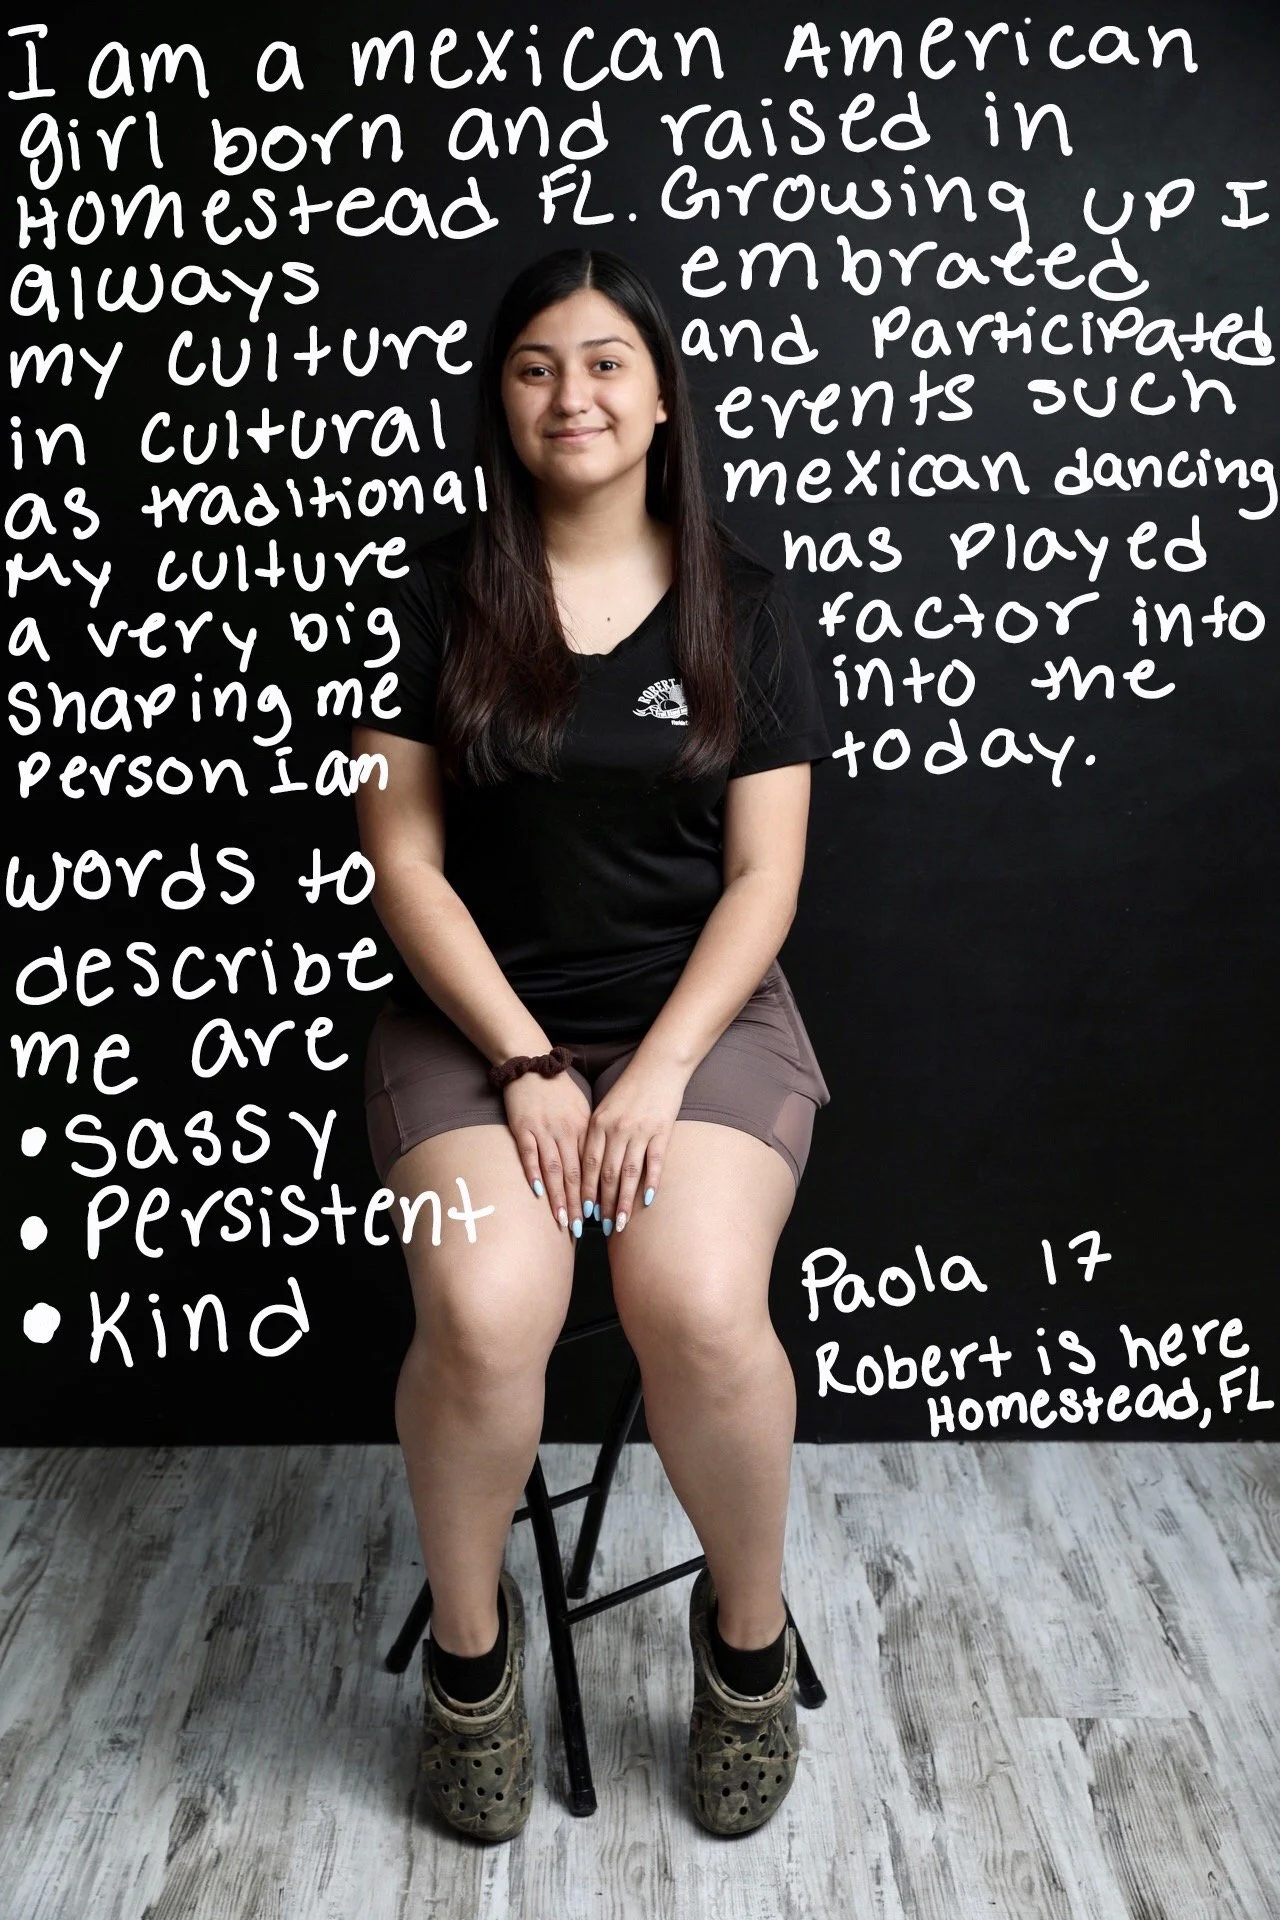 I am a mexican American
girl born and raised in
Homestead FL. Growing up I
always embraced
my culture and participated
in cultural events such
as traditional mexican dancing
My culture has played
a very big factor into
shaping me into the
person I am today.
words to
describe
me are
• Sassy
• Persistent
• Kind
Paola 17
Robert is here
Homestead, FL
ROBERT